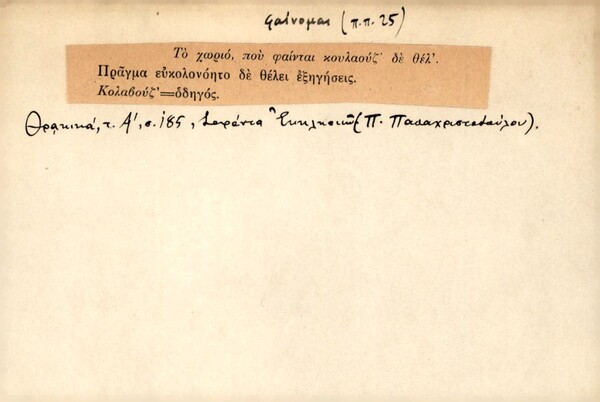 φαίνομαι (π.π. 25)
Τὸ χωριό, ποὺ φαίνται κουλαούζ' δὲ θέλ'.
Πρᾶγμα εὐκολονόητο δὲ θέλει ἐξηγήσεις.
Κολαβούζ'=ὁδηγός.
Θρακικά, τ. Α', σ. 185, Σαράντα Ἐκκλησιῶν (Π. Παπαχριστοδούλου).